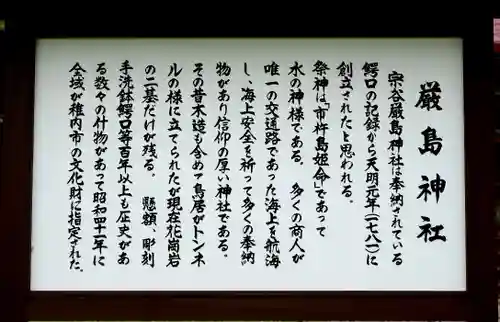 厳島神社
宗谷厳島神社は奉納されている
鰐口の記録から天明元年(一七八一)に
創立されたと思われる。
祭神は「市杵島姫命」であって
水の神様である。 多くの商人が
唯一の交通路であった海上を航海
し、海上安全を祈って多くの奉納
物があり信仰の厚い神社である。
その昔木造も含めて鳥居がトンネ
ルの様に立てられたが現在花崗岩
の二基だけが残る。 懸額、彫刻
手洗鉢鰐口等百年以上も圧史があ
る数々の什物があって昭和四十一年に
全域が稚内市の文化財に指定された。